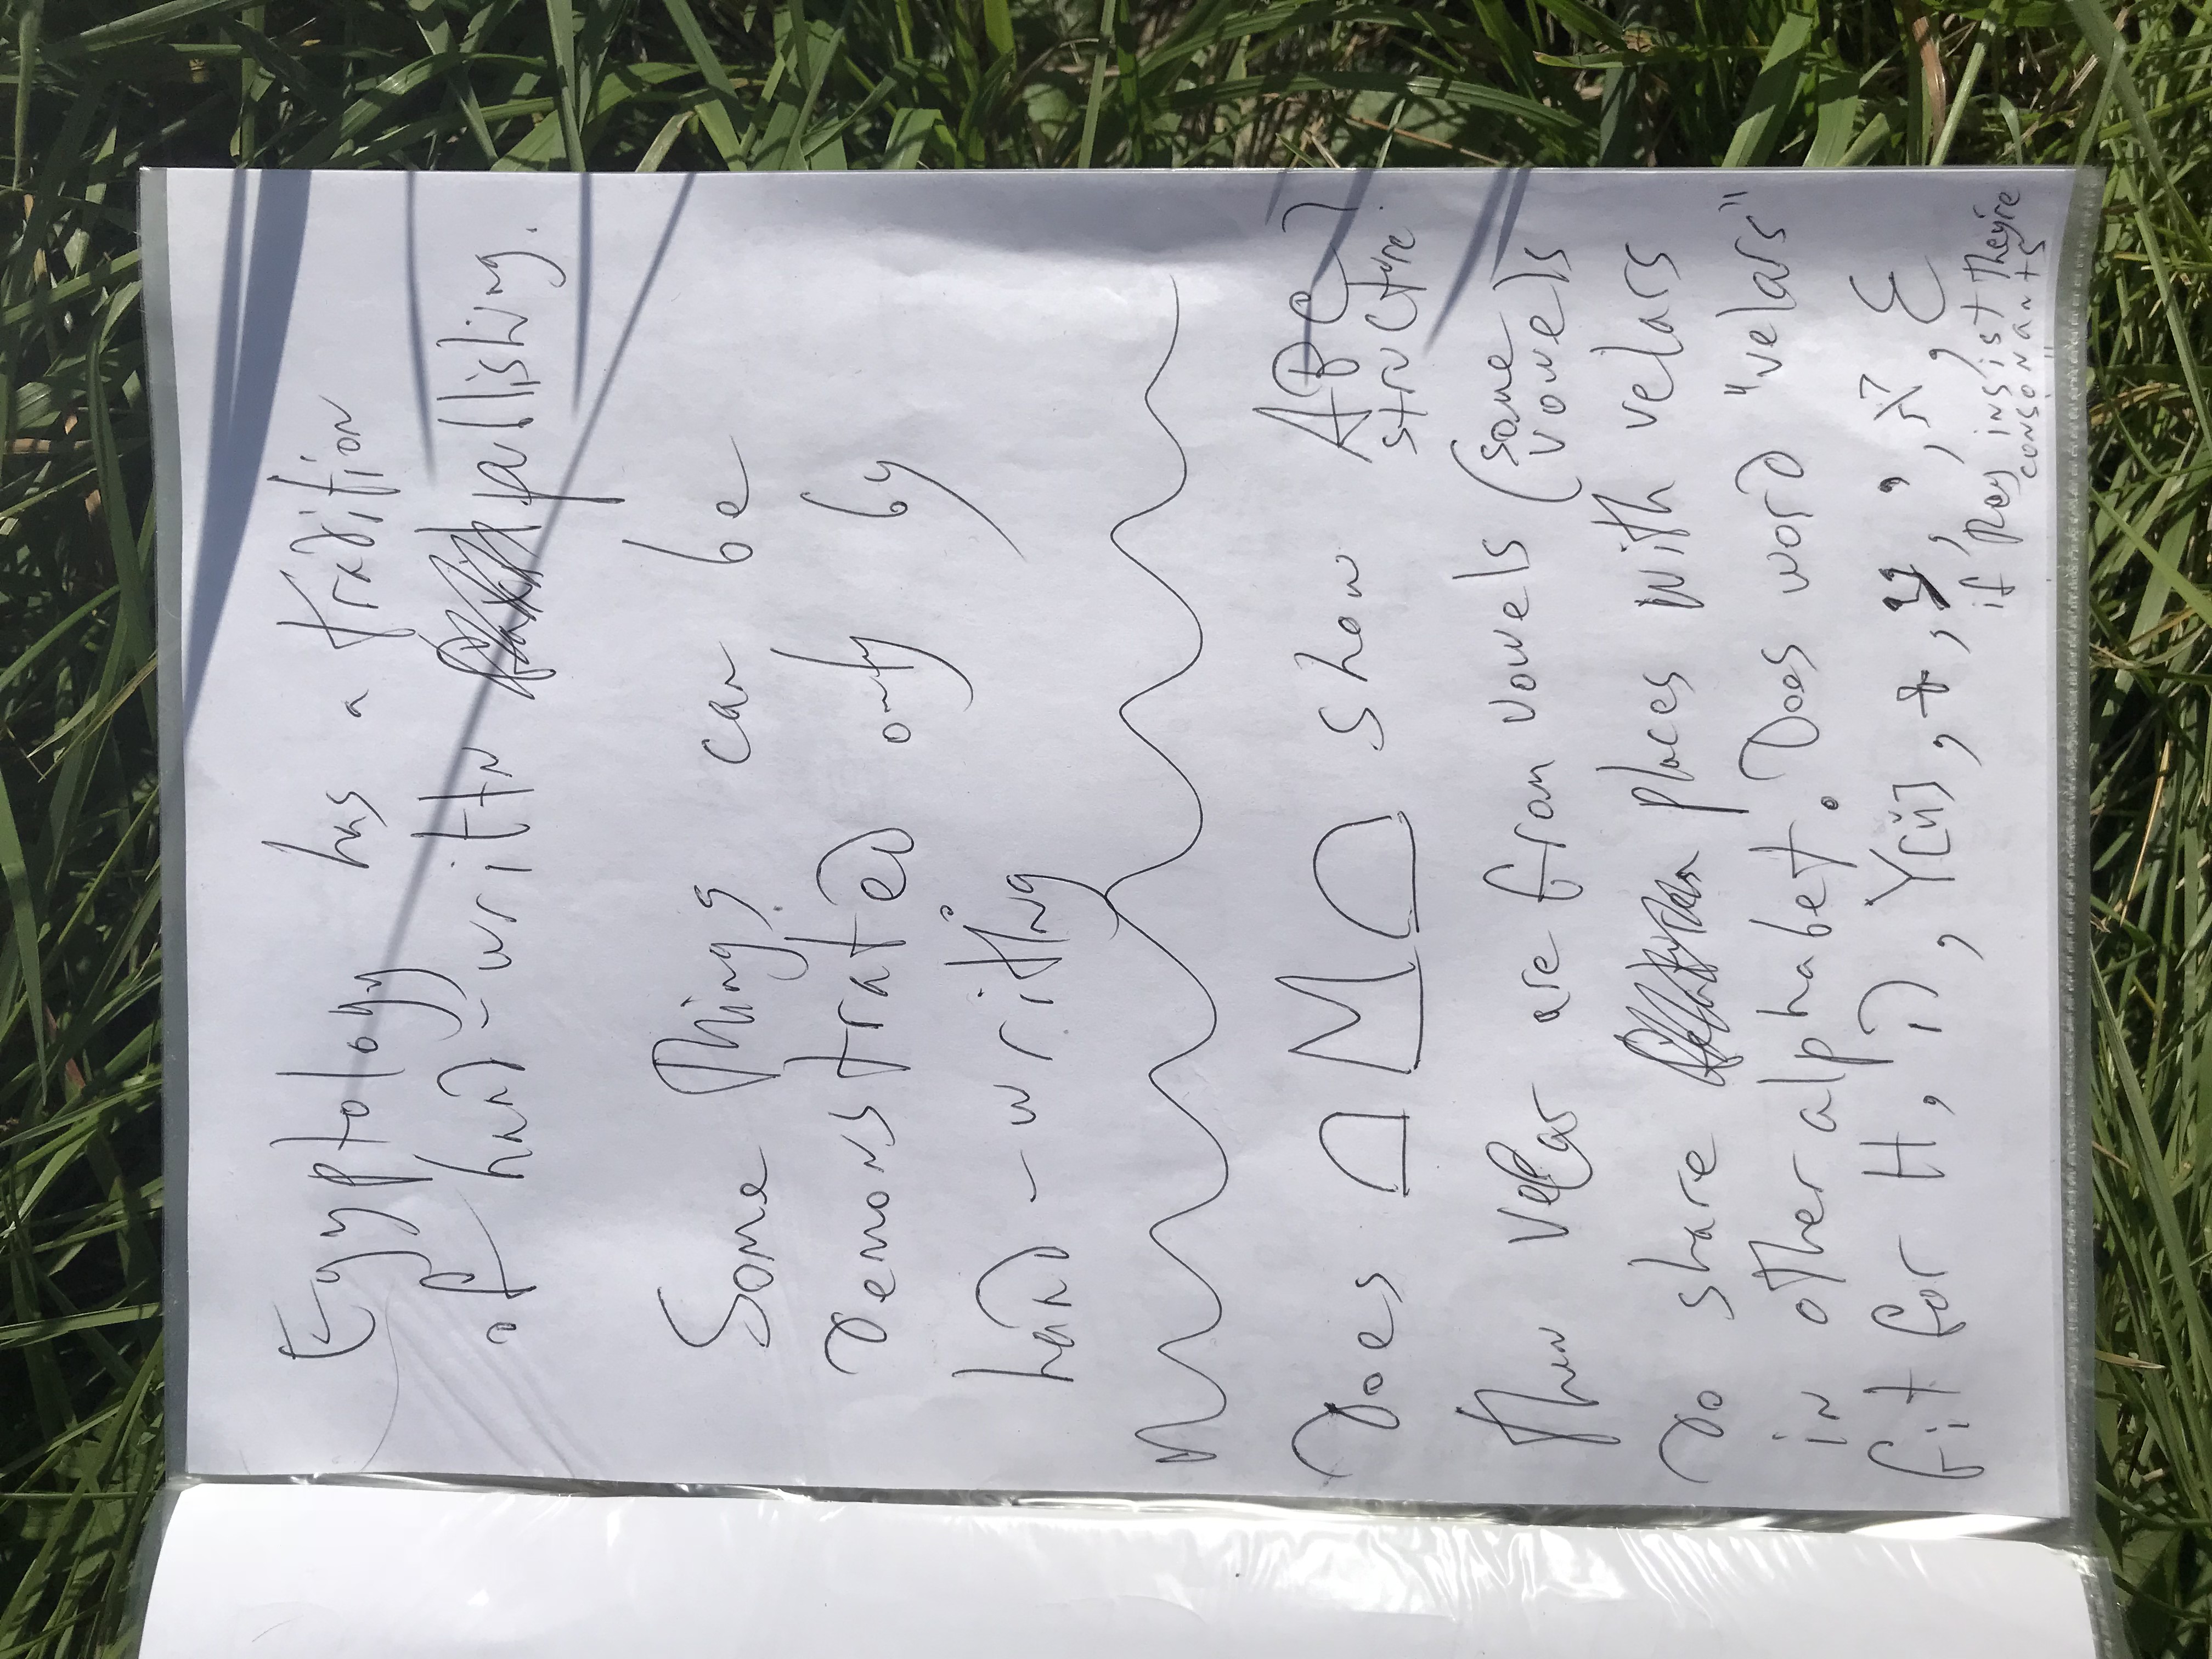 Egyptology has a tradition
of hand-writtn publishing.
Some things can be
demonstrated only by
hand-writing
Does show ABC?
structure
Then velar are from vowels (some
vowels
do share places with velars
in other alphabet. Does word "velars"
fit for H, Y[й], ע, ', א, Ɛ
if they insist they're
consonants